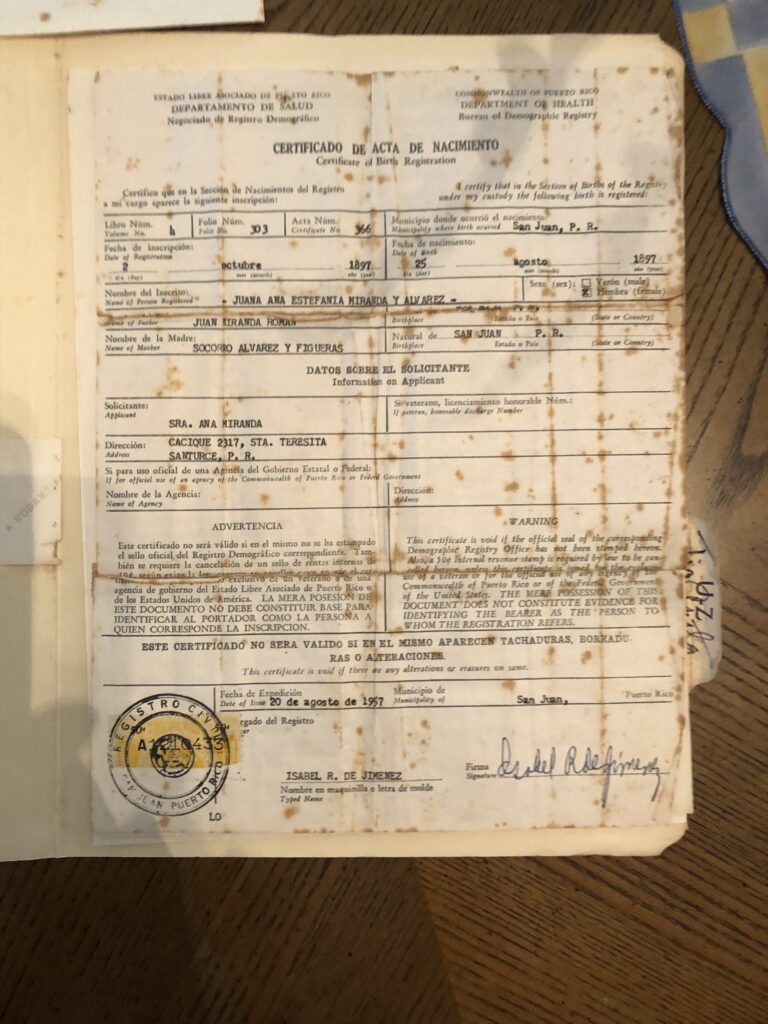 ESTADO LIBRE ASOCIADO DE PUERTO RICO
DEPARTAMENTO DE SALUD
Negociado de Registro Demográfico
COMMONWEALTH OF PUERTO RICO
DEPARTMENT OF HEALTH
Bureau of Demographic Registry
CERTIFICADO DE ACTA DE NACIMIENTO
Certificate of Birth Registration
Certifico que en la Sección de Nacimientos del Registro
a mi cargo aparece la siguiente inscripción:
I certify that in the Section of Births of the Registry
under my custody the following birth is registered:
Libro Núm. 4 Folio Núm. 303 Acta Núm. 366
Volume No. Folio No. Certificate No.
Municipio donde ocurrió el nacimiento:
Municipality where birth ocurred San Juan, P. R.
Fecha de Inscripción:
Date of Registration
2 octubre 1897
día (day) mes (month) año (year)
Fecha de nacimiento:
Date of Birth
25 agosto 1897
día (day) mes (month) año (year)
Nombre del Inscrito:
Name of Person Registered - JUANA ANA ESTEFANIA MIRANDA Y ALVAREZ -
Sexo (sex): Varón (male)
X Hembra (female)
Name of Father JUAN MIRANDA ROMAN
P. R.
Birthplace Estado o País (State or Country)
Nombre de la Madre:
Name of Mother SOCORRO ALVAREZ Y FIGUERAS
Natural de SAN JUAN P. R.
Birthplace Estado o País (State or Country)
DATOS SOBRE EL SOLICITANTE
Information on Applicant
Solicitante:
Applicant
SRA. ANA MIRANDA
Si veterano, licenciamiento honorable Núm.:
If veteran, honorable discharge Number
Dirección: CACIQUE 2317, STA. TERESITA
Address SANTURCE, P. R.
Si para uso oficial de una Agencia del Gobierno Estatal o Federal:
If for official use of an agency of the Commonwealth of Puerto Rico or Federal Government
Nombre de la Agencia:
Name of Agency
Dirección:
Address
ADVERTENCIA
Este certificado no será válido si en el mismo no se ha estampado
el sello oficial del Registro Demográfico correspondiente. Tam-
bién se requiere la cancelación de un sello de rentas internas de
exclusivo de un Veterano o de una
agencia de gobierno del Estado Libre Asociado de Puerto Rico o
de los Estados Unidos de América. LA MERA POSESION DE
ESTE DOCUMENTO NO DEBE CONSTITUIR BASE PARA
IDENTIFICAR AL PORTADOR COMO LA PERSONA A
QUIEN CORRESPONDE LA INSCRIPCION.
WARNING
This certificate is void if the official seal of the corresponding
Demographic Registry Office has not been stamped hereon.
Also, a 10¢ internal revenue stamp is required by law to be can-
celled hereon unless this certificate is issued for the
use of a veteran or for the official use of any agency of the
Commonwealth of Puerto Rico or of the Federal Government
of the United States. THE MERE POSSESSION OF THIS
DOCUMENT DOES NOT CONSTITUTE EVIDENCE FOR
IDENTIFYING THE BEARER AS THE PERSON TO
WHOM THE REGISTRATION REFERS.
ESTE CERTIFICADO NO SERA VALIDO SI EN EL MISMO APARECEN TACHADURAS, BORRADU-
RAS O ALTERACIONES.
This certificate is void if there are any alterations or erasures on same.
Fecha de Expedición
Date of Issue 20 de agosto de 1957
Municipio de
Municipality of San Juan, Puerto Rico
rgado del Registro
REGISTRO CIVIL
SAN JUAN PUERTO RICO
ISABEL R. DE JIMENEZ
Nombre en maquinilla o letra de molde
Typed Name
Firma
Signature Isabel R de Jimenez
LO
A KODAK